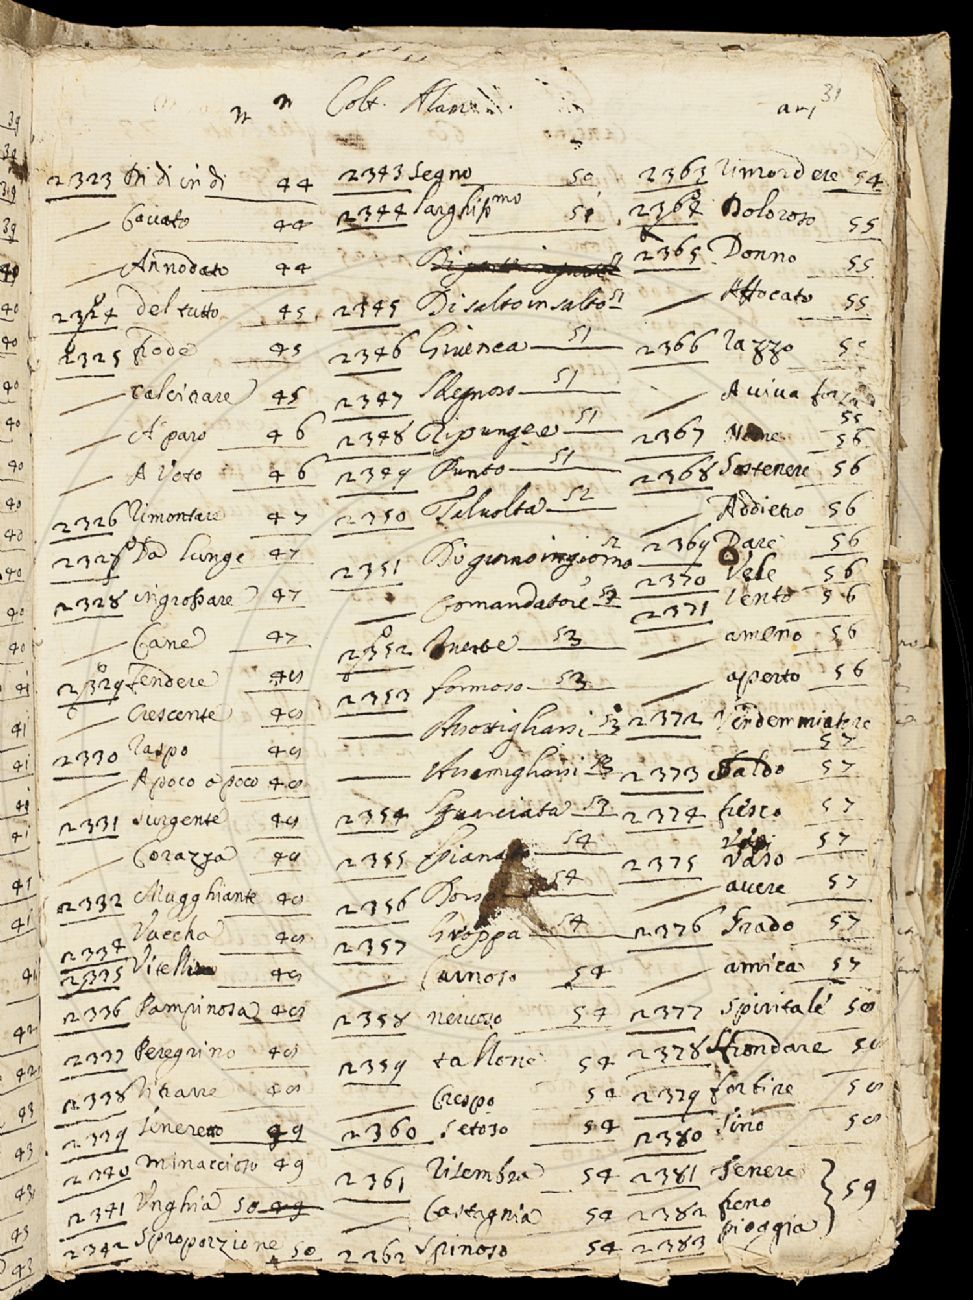 Colt. Alam.
31
2323 Di dì in dì 44
— Cavato 44
— Annodato 44
2324 del tutto 45
2325 frode 45
— calcinare 45
— A paro 46
— A Voto 46
2326 Rimontare 47
2327 Da lunge 47
2328 ingrossare 47
— Cane 47
2329 fendere 48
— Crescente 48
2330 Raspo 48
— A poco a poco 48
2331 surgente 48
— Corazza 48
2332 Mugghiante 48
2334 Vaccha 48
2335 Vitello 48
2336 Pampinosa 48
2337 Peregrino 48
2338 Ritrarre 48
2339 Tenereto 49
2340 minaccioso 49
2341 Unghia 50
2342 Sproporzione 50
2343 segno 50
2344 larghissmo 51
2345 Di salto in salto 51
2346 Giuenca 51
2347 Regnoso 51
2348 Ripungere 51
2349 Punto 51
2350 Talvolta 52
2351 Di giorno in giorno 52
— Comandatore 52
2352 Inerbe 53
2353 formoso 53
— Assottigliarsi 53
— Assomigliarsi 53
2354 Squarciata 53
2355 Spianato 54
2356 Dorso 54
2357 Groppa 54
— Carnoso 54
2358 neruoso 54
2359 tallone 54
— Crespo 54
2360 Setoso 54
2361 Risembra 54
— Castagnia 54
2362 Spinoso 54
2363 Rimordere 54
2364 Doloroso 55
2365 Donno 55
— Affocato 55
2366 Razzo 55
— A viva forza 55
2367 Nome 56
2368 Sostenere 56
— Addietro 56
2369 Dare 56
2370 Vele 56
2371 Vento 56
— ameno 56
— aperto 56
2372 Vendemmiatore 57
2373 Saldo 57
2374 fresco 57
2375 Vaso 57
— avere 57
2376 Grado 57
— amica 57
2377 Spiritale 58
2378 Sfrondare 58
2379 fortire 58
2380 Sino 58
2381 Tenere
2382 freno } 59
2383 pioggia